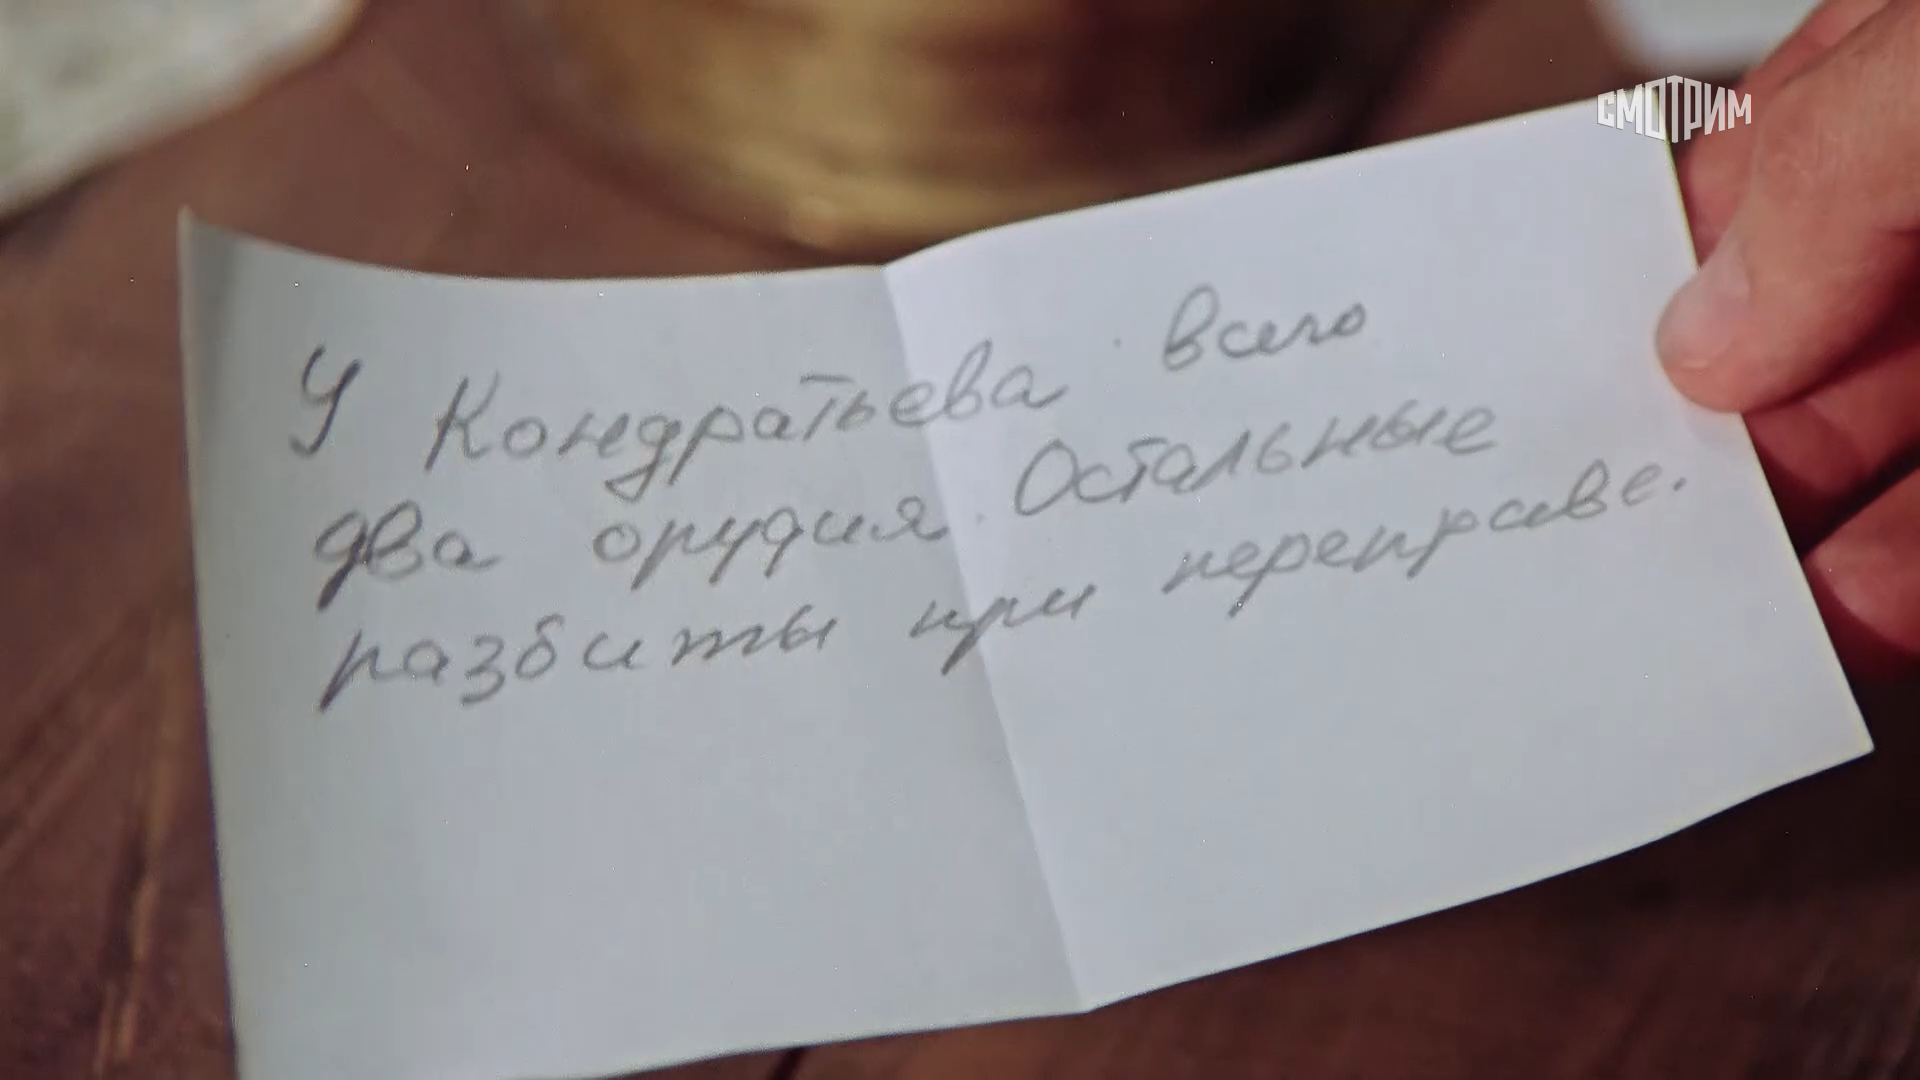 СМОТРИМ
У Кондратьева всего
два орудия. Остальные
разбиты при переправе.